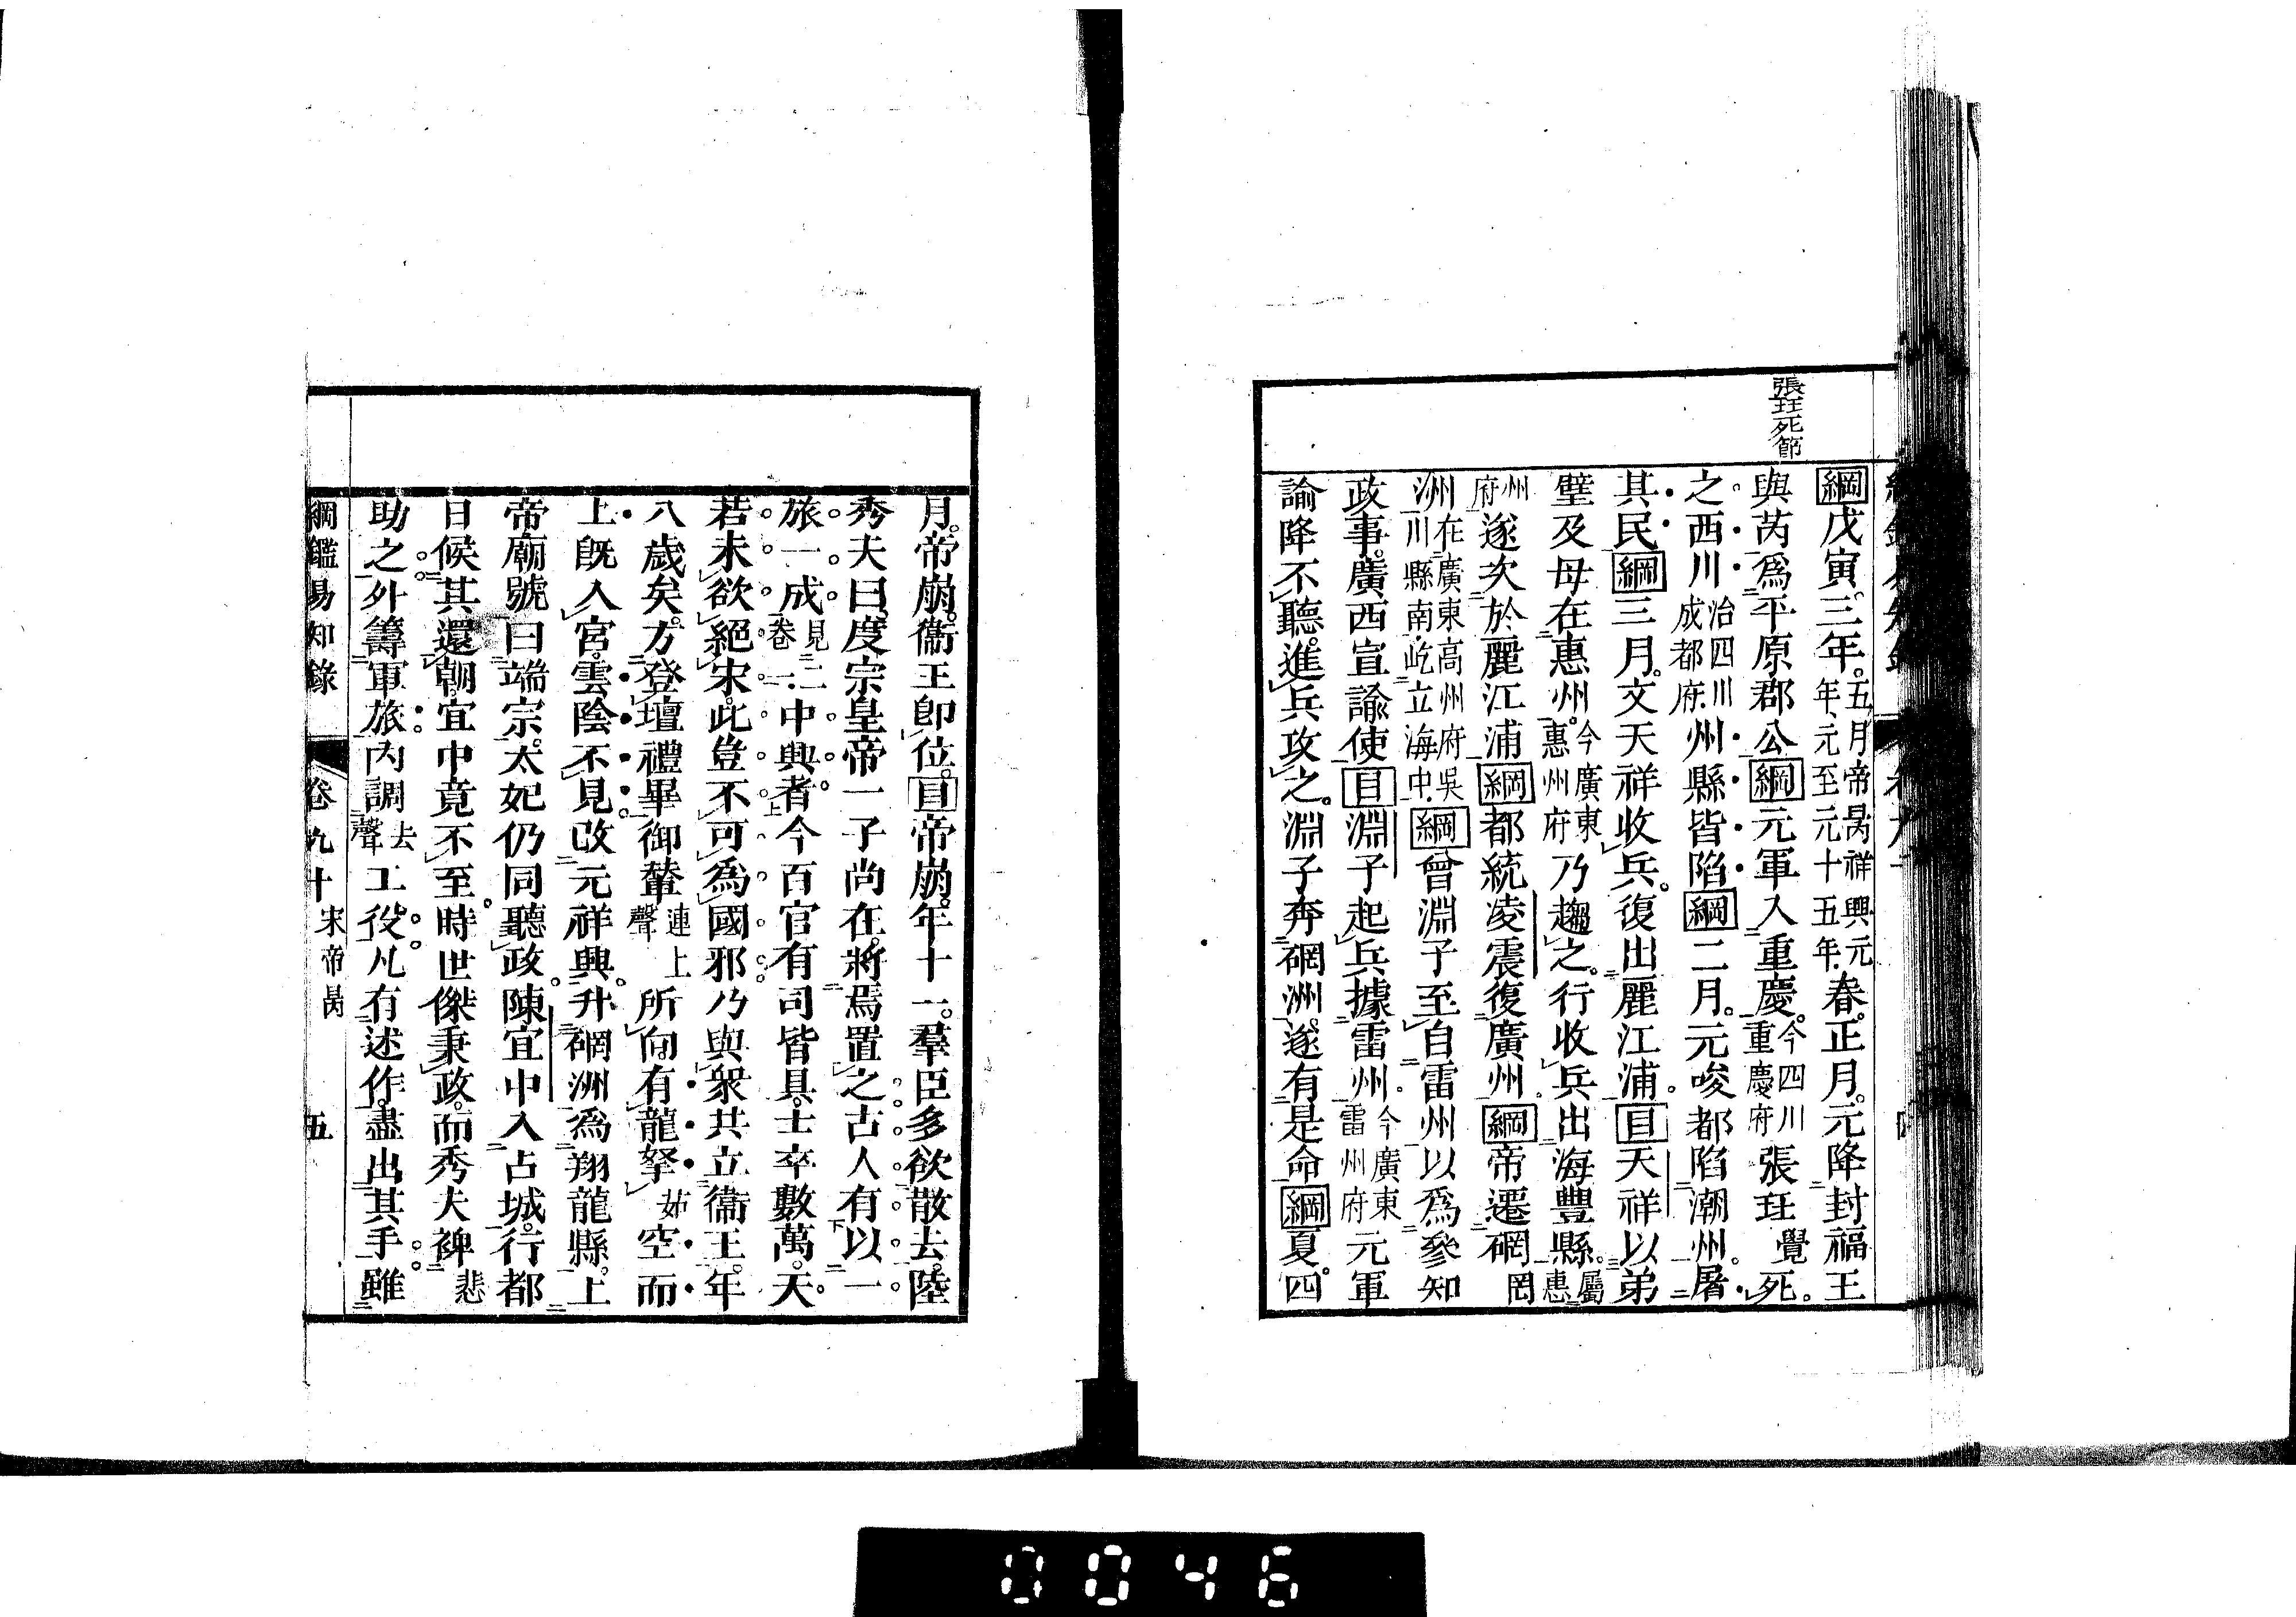 張珏死節
綱戊寅。三年。五月帝昺祥興元年、元至元十五年、春。正月。元降封福王
與芮爲平原郡公綱元軍入重慶。今四川重慶府張珏覺死。
之西川治四川成都府州縣皆陷綱二月。元唆都陷潮州。屠
其民綱三月。文天祥收兵。復出麗江浦。目天祥以弟
璧及母在惠州。今廣東惠州府乃趨之。行收兵出海豐縣。屬惠
州府遂次於麗江浦綱都統凌震復廣州綱帝遷碙罔
洲在廣東高州府吳川縣南屹立海中綱曾淵子至自雷州以爲參知
政事。廣西宣諭使目淵子起兵據雷州。今廣東雷州府元軍
諭降不聽。進兵攻之。淵子奔碙洲。遂有是命綱夏。四
月。帝崩。衞王卽位。目帝崩。年十一。羣臣多欲散去。陸
秀夫曰。度宗皇帝一子尚在。將焉置之古人有以一
旅一成見二卷一中興者今百官有司皆具。士卒數萬。天
若未欲絕宋。此豈不可爲國邪乃與衆共立衞王。年
八歲矣。方登壇禮畢御輦連上聲所向。有龍拏茹空而
上旣入宮。雲陰不見改元祥興。升碙洲爲翔龍縣。上
帝廟號曰端宗。太妃仍同聽政。陳宜中入占城。行都
日候其還朝。宜中竟不至。時世傑秉政。而秀夫裨悲
助之外籌軍旅。內調去聲工役。凡有述作。盡出其手。雖
綱鑑易知錄 卷九十 宋帝昺 五
0046